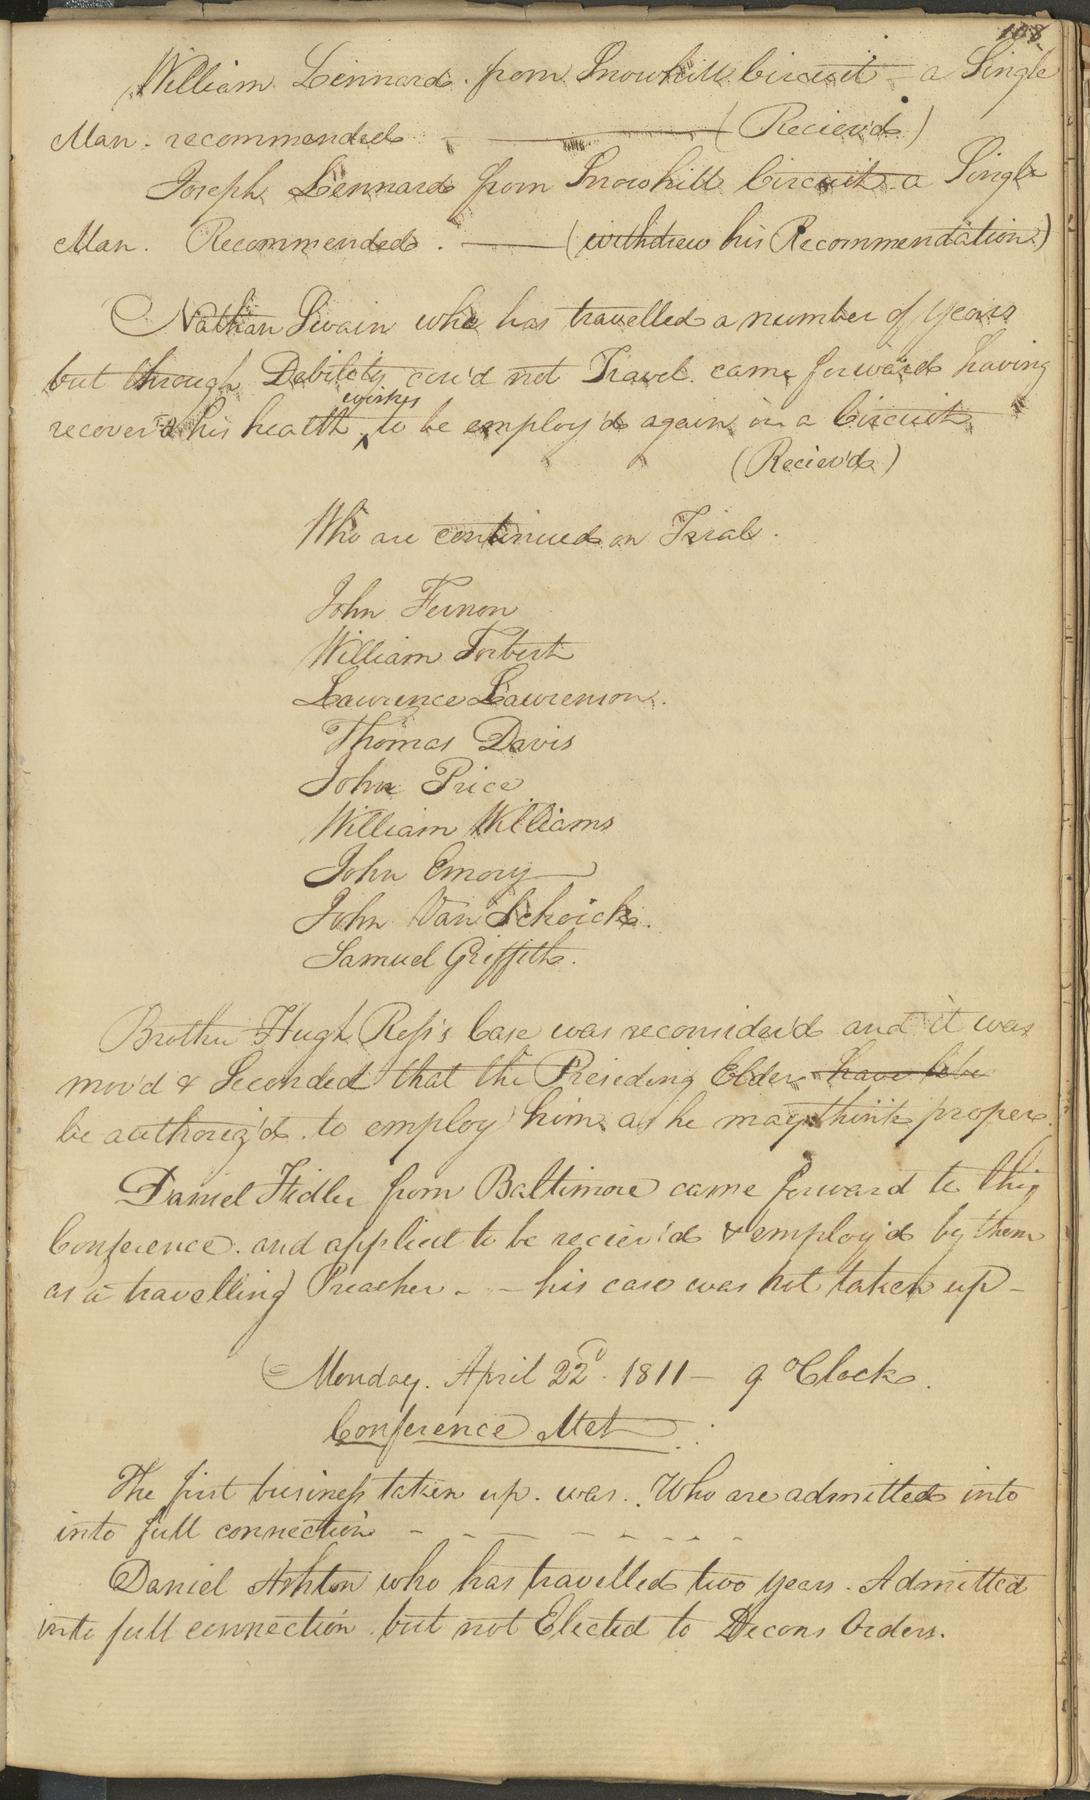 108
William Lennard. from Snowhill Circuit - a Single
Man. recommended (Reciev'd.)
Joseph Lennard from Snowhill Circuit. a Single
Man. Recommended. (withdrew his Recommendation.)
Nathan Swain who has travelled a number of years
but through Debility cou'd not Travel. came forward having
recover'd his health wishes to be employ'd again in a Circuit
(Reciev'd)
Who are continued on Trial.
John Fernon
William Torbert
Lawrence Lawrenson.
Thomas Davis
John Price
William Williams
John Emory
John Van Schoick.
Samuel Griffith.
Brother Hugh Ross's Case was reconsider'd and it was
mov'd & Seconded that the Preseding Elder have
be authoriz'd. to employ him as he may think proper.
Daniel Fidler from Baltimore came forward to this
Conference. and applied to be reciev'd & employ'd by them
as a travelling Preacher - - his case was not taken up -
Monday. April 22d. 1811 - 9 OClock.
Conference Met
The first business taken up. was. Who are admitted into
into full connection - - - - - - - -
Daniel Ashton who has travelled two years. Admitted
into full connection. but not Elected to Decons Orders.